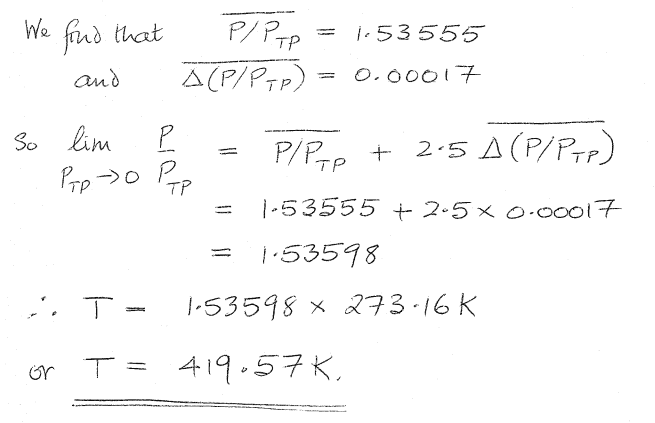 We find that P/P_TP = 1.53555
and Δ(P/P_TP) = 0.00017
So lim_{P_TP→0} P/P_TP = P/P_TP + 2.5 Δ(P/P_TP)
= 1.53555 + 2.5 × 0.00017
= 1.53598
∴ T = 1.53598 × 273.16 K
or T = 419.57 K.